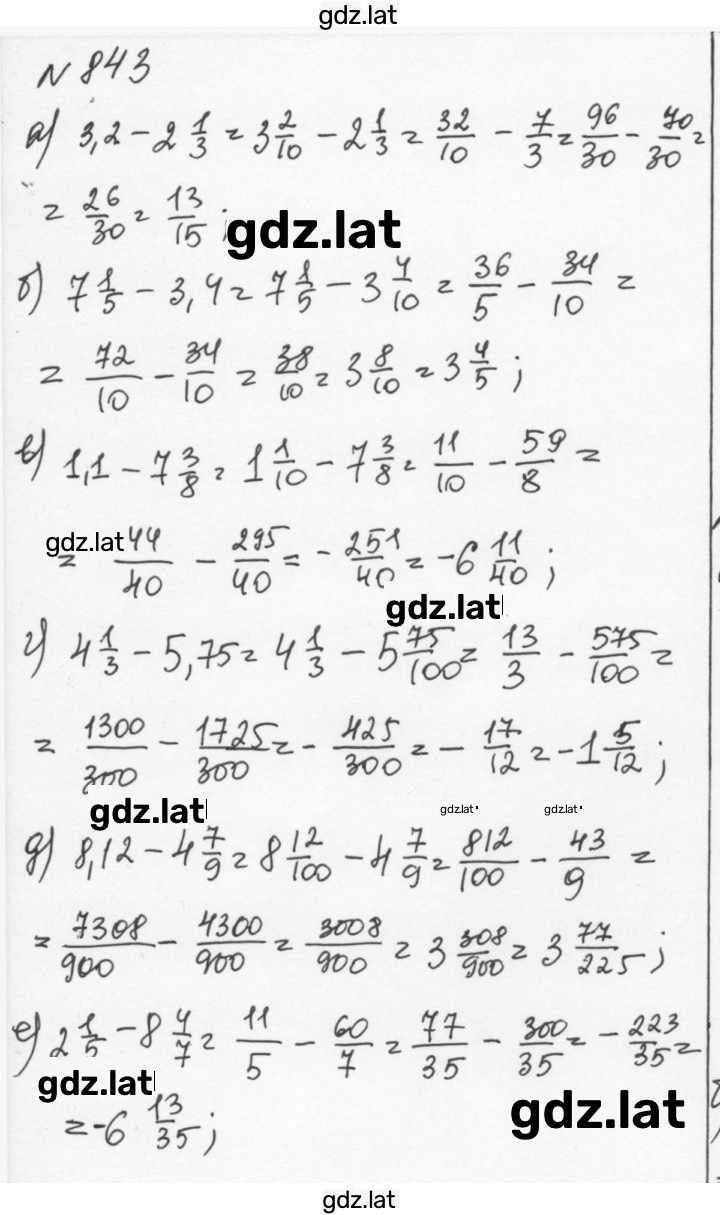 gdz.lat
N 843
а) 3,2 - 2 1/3 = 3 2/10 - 2 1/3 = 32/10 - 7/3 = 96/30 - 70/30 =
= 26/30 = 13/15 ; gdz.lat
б) 7 1/5 - 3,4 = 7 1/5 - 3 4/10 = 36/5 - 34/10 =
= 72/10 - 34/10 = 38/10 = 3 8/10 = 3 4/5 ;
в) 1,1 - 7 3/8 = 1 1/10 - 7 3/8 = 11/10 - 59/8 =
gdz.lat
= 44/40 - 295/40 = - 251/40 = -6 11/40 ;
gdz.lat
г) 4 1/3 - 5,75 = 4 1/3 - 5 75/100 = 13/3 - 575/100 =
= 1300/300 - 1725/300 = - 425/300 = - 17/12 = -1 5/12 ;
gdz.lat gdz.lat gdz.lat
д) 8,12 - 4 7/9 = 8 12/100 - 4 7/9 = 812/100 - 43/9 =
= 7308/900 - 4300/900 = 3008/900 = 3 308/900 = 3 77/225 ;
е) 2 1/5 - 8 4/7 = 11/5 - 60/7 = 77/35 - 300/35 = - 223/35 =
gdz.lat
= -6 13/35 ;
gdz.lat
gdz.lat